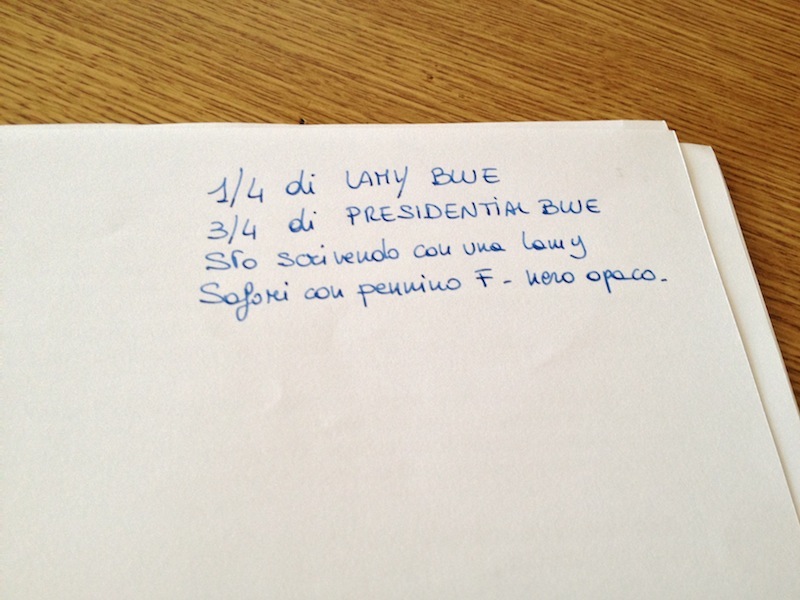 1/4 di LAMY BLUE
3/4 di PRESIDENTIAL BLUE
Sto scrivendo con una lamy
Safari con pennino F - nero opaco.